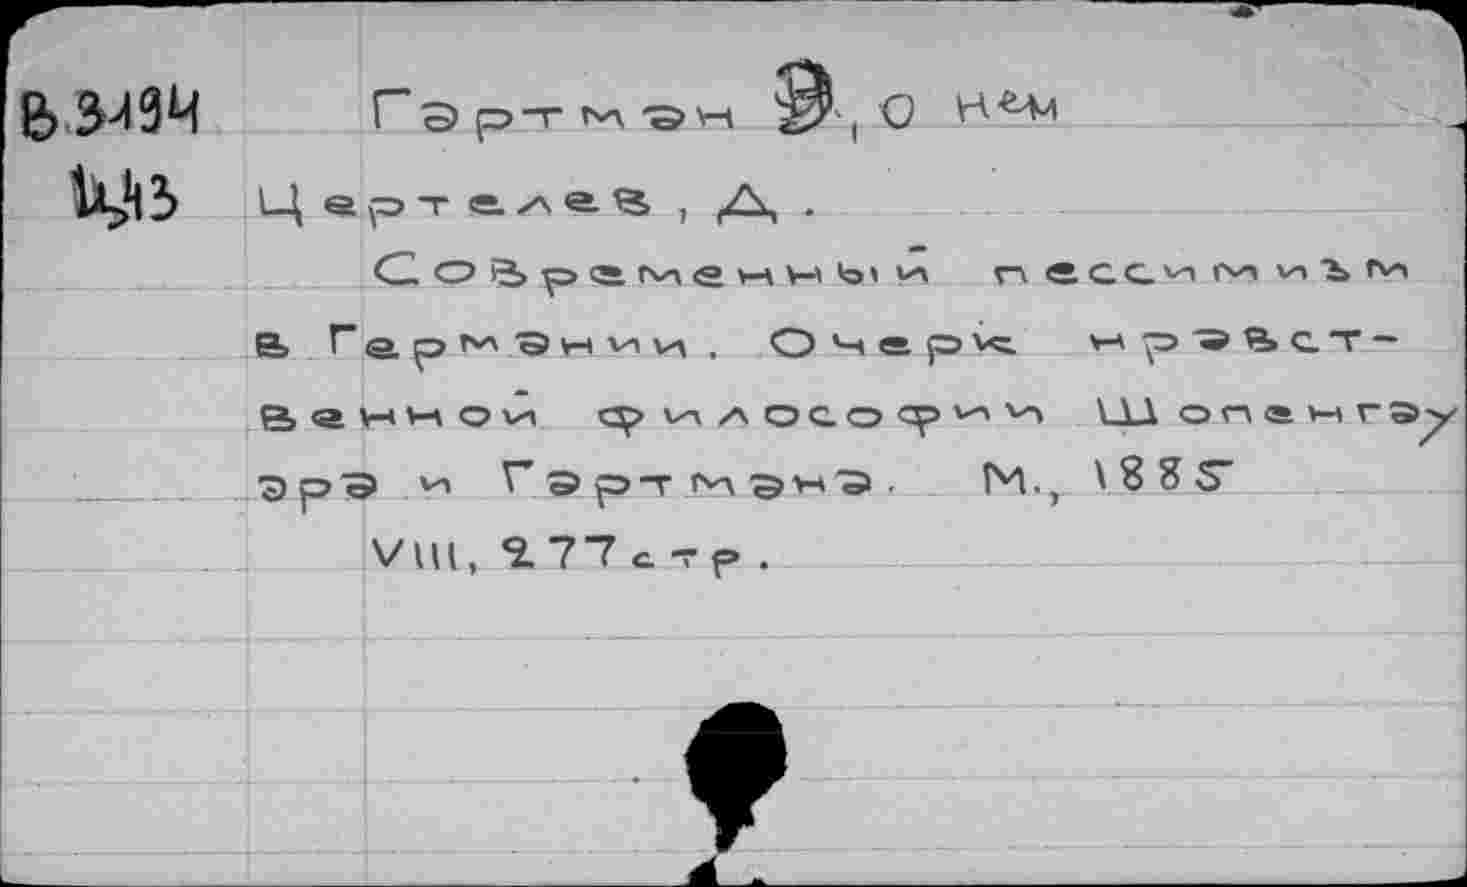 В.3-19Ч Гартман Э., о нем
Ц13 Цертелев, Д.
Современный пессимизм
в Германии. Очерк нравст-
венной философии Шопенгау
эра и Гартмана. М., 1885
VIII, 277 стр.